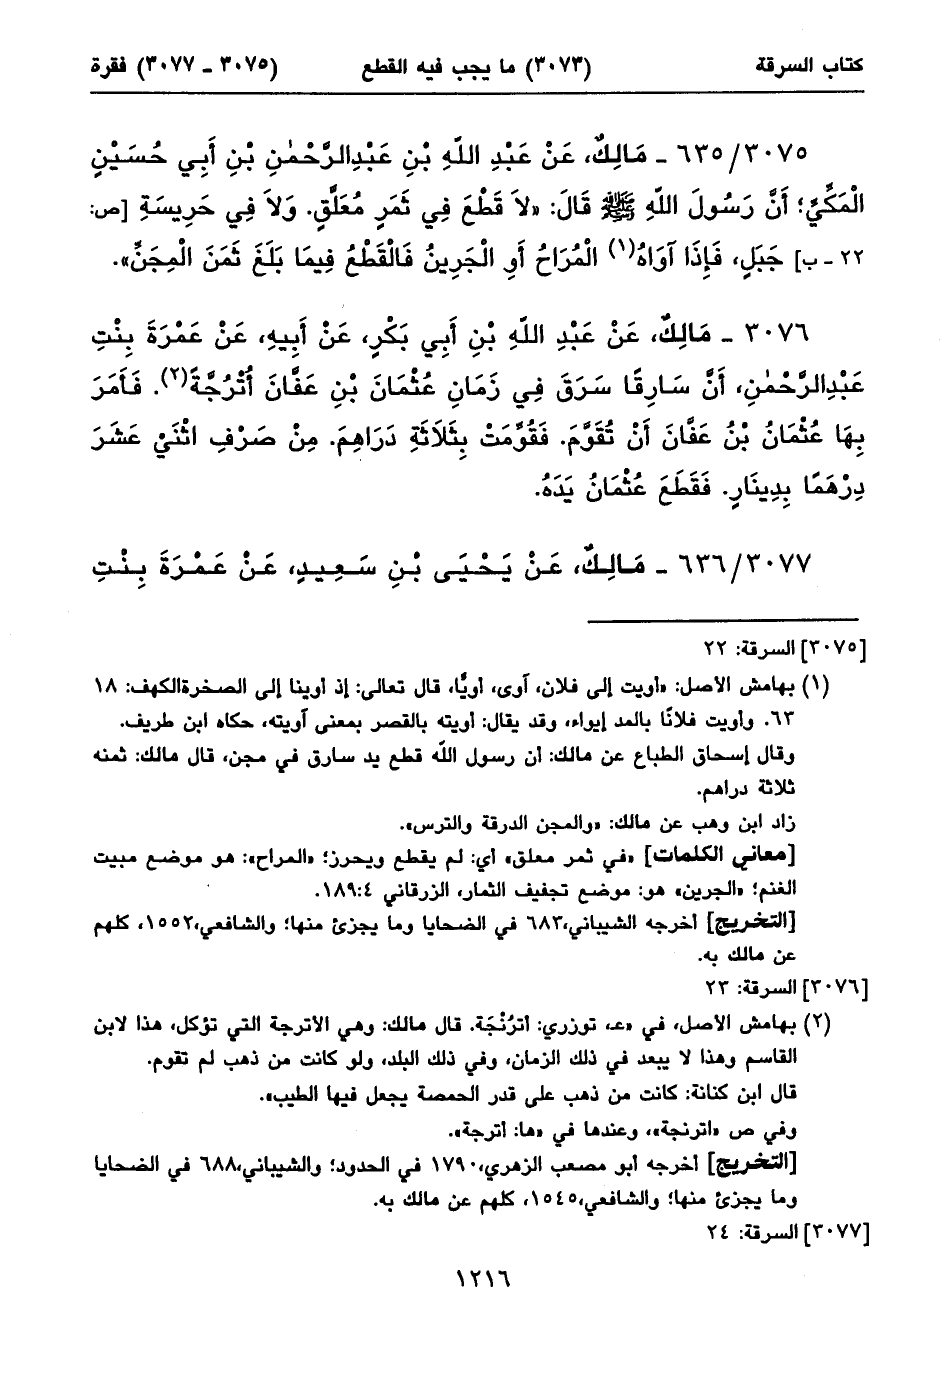 كتاب السرقة (٣٠٧٣) ما يجب فيه القطع (٣٠٧٥ ـ ٣٠٧٧) فقرة
٦٣٥/٣٠٧٥ ـ مَالِكٌ، عَنْ عَبْدِ اللّهِ بْنِ عَبْدِالرَّحْمٰنِ بْنِ أَبِي حُسَيْنٍ
الْمَكِّيِّ؛ أَنَّ رَسُولَ اللّهِ ﷺ قَالَ: «لاَ قَطْعَ فِي ثَمَرٍ مُعَلَّقٍ. وَلاَ فِي حَرِيسَةِ [ص:
٢٢ ـ ب] جَبَلٍ، فَإِذَا آوَاهُ(١) الْمُرَاحُ أَوِ الْجَرِينُ فَالْقَطْعُ فِيمَا بَلَغَ ثَمَنَ الْمِجَنِّ».
٣٠٧٦ ـ مَالِكٌ، عَنْ عَبْدِ اللّهِ بْنِ أَبِي بَكْرٍ، عَنْ أَبِيهِ، عَنْ عَمْرَةَ بِنْتِ
عَبْدِالرَّحْمٰنِ، أَنَّ سَارِقًا سَرَقَ فِي زَمَانِ عُثْمَانَ بْنِ عَفَّانَ أُتْرُجَّةً(٢). فَأَمَرَ
بِهَا عُثْمَانُ بْنُ عَفَّانَ أَنْ تُقَوَّمَ. فَقُوِّمَتْ بِثَلاَثَةِ دَرَاهِمَ. مِنْ صَرْفِ اثْنَيْ عَشَرَ
دِرْهَمًا بِدِينَارٍ. فَقَطَعَ عُثْمَانُ يَدَهُ.
٦٣٦/٣٠٧٧ ـ مَالِكٌ، عَنْ يَحْيَى بْنِ سَعِيدٍ، عَنْ عَمْرَةَ بِنْتِ
[٣٠٧٥] السرقة: ٢٢
(١) بهامش الأصل: «أويت إلى فلان، أوى، أويًّا، قال تعالى: إذ أوينا إلى الصخرةالكهف: ١٨
٦٣. وأويت فلانًا بالمد إيواء، وقد يقال: أويته بالقصر بمعنى آويته، حكاه ابن طريف.
وقال إسحاق الطباع عن مالك: أن رسول اللّه قطع يد سارق في مجن، قال مالك: ثمنه
ثلاثة دراهم.
زاد ابن وهب عن مالك: «والمجن الدرقة والترس».
[معاني الكلمات] «في ثمر معلق» أي: لم يقطع ويحرز؛ «المراح»: هو موضع مبيت
الغنم؛ «الجرين» هو: موضع تجفيف الثمار، الزرقاني ١٨٩:٤.
[التخريج] أخرجه الشيباني،٦٨٣ في الضحايا وما يجزئ منها؛ والشافعي،١٥٥٢، كلهم
عن مالك به.
[٣٠٧٦] السرقة: ٢٣
(٢) بهامش الأصل، في «ع، توزري: أترُنْجَة. قال مالك: وهي الأترجة التي تؤكل، هذا لابن
القاسم وهذا لا يبعد في ذلك الزمان، وفي ذلك البلد، ولو كانت من ذهب لم تقوم.
قال ابن كنانة: كانت من ذهب على قدر الحمصة يجعل فيها الطيب».
وفي ص «اترنجة»، وعندها في «ها: أترجة».
[التخريج] أخرجه أبو مصعب الزهري،١٧٩٠ في الحدود؛ والشيباني،٦٨٨ في الضحايا
وما يجزئ منها؛ والشافعي،١٥٤٥، كلهم عن مالك به.
[٣٠٧٧] السرقة: ٢٤
١٢١٦